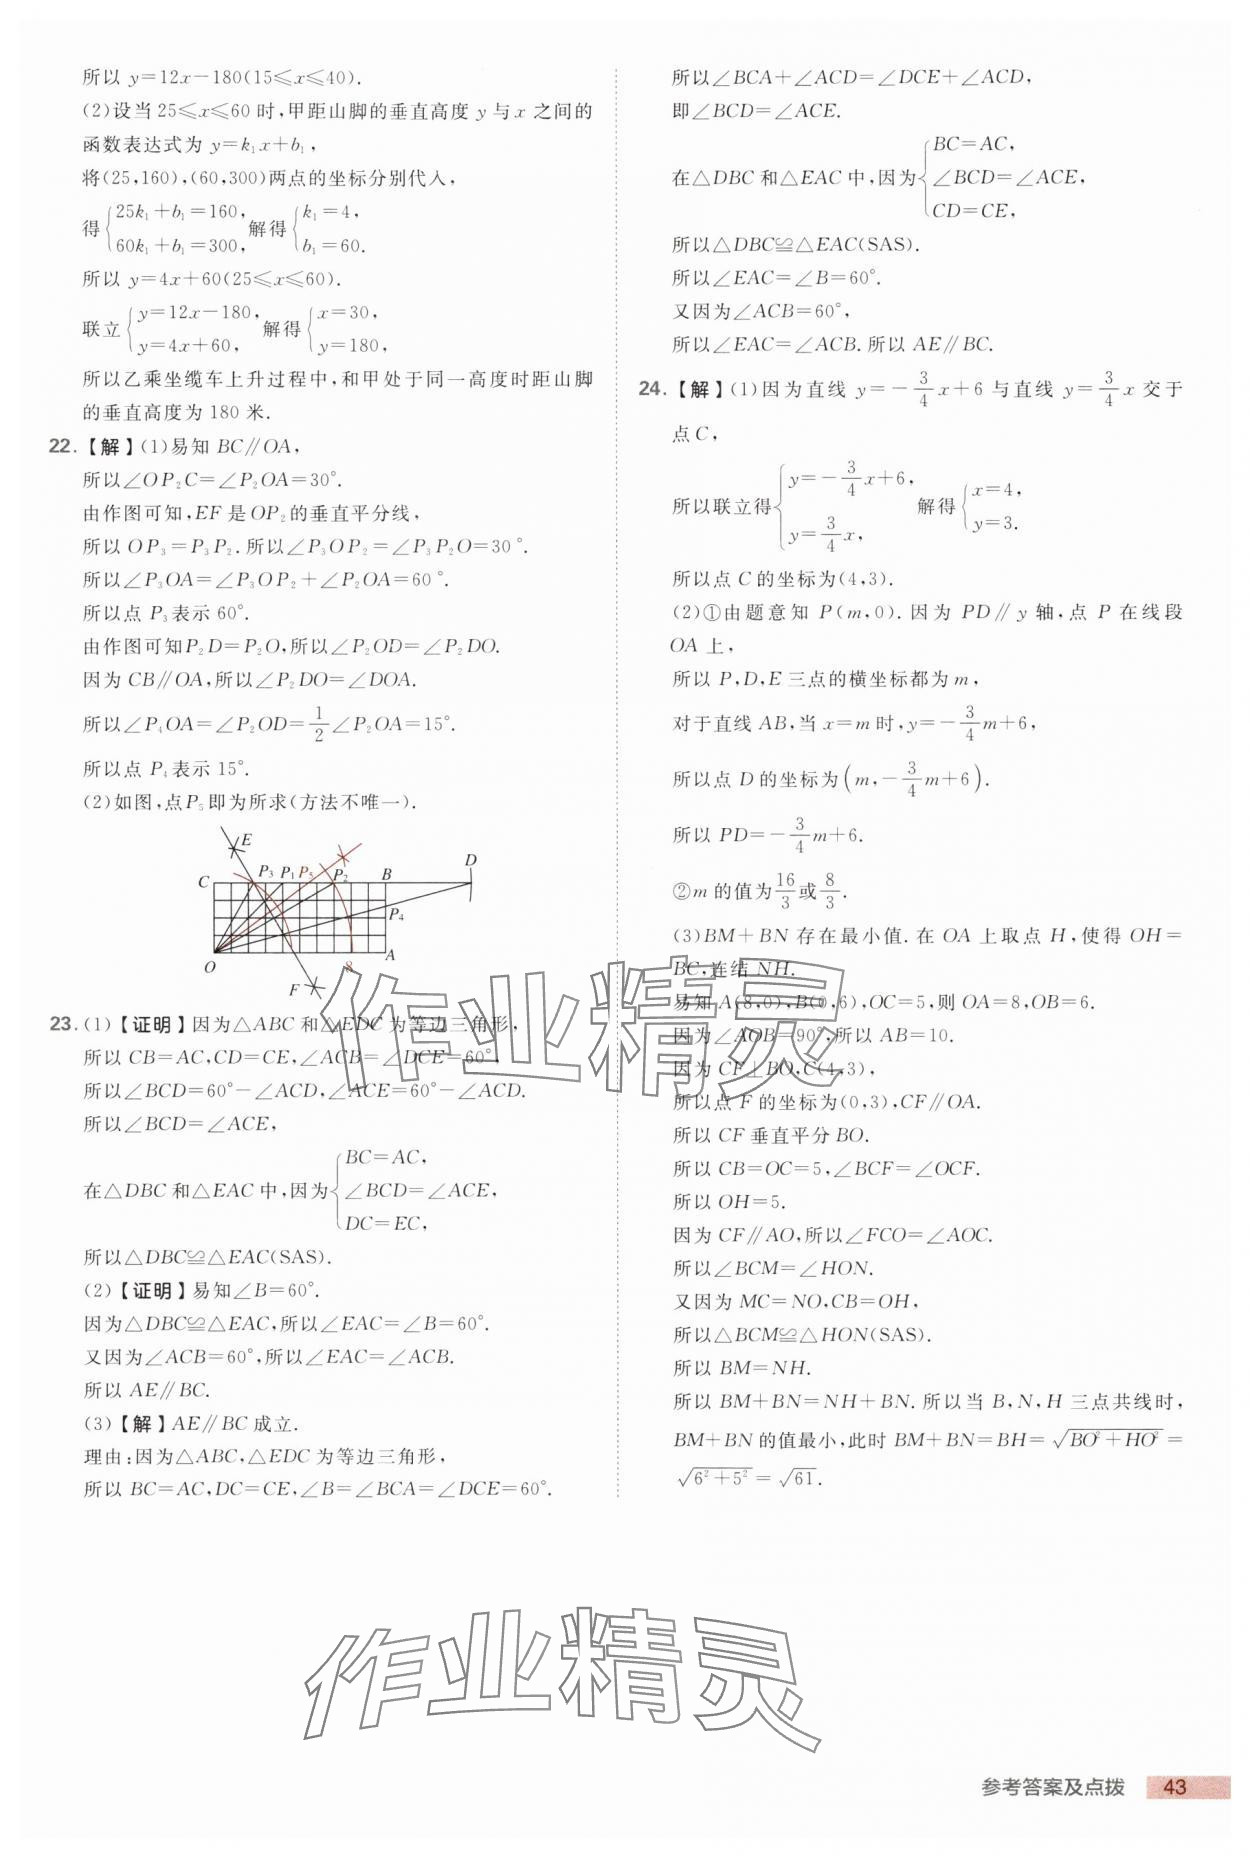 所以 y=12x-180(15≤x≤40).
(2)设当 25≤x≤60 时,甲距山脚的垂直高度 y 与 x 之间的
函数表达式为 y=k₁x+b₁,
将(25,160),(60,300)两点的坐标分别代入,
得{25k₁+b₁=160, 60k₁+b₁=300, 解得{k₁=4, b₁=60.
所以 y=4x+60(25≤x≤60).
联立{y=12x-180, y=4x+60, 解得{x=30, y=180,
所以乙乘坐缆车上升过程中,和甲处于同一高度时距山脚
的垂直高度为 180 米.
22.【解】(1)易知 BC∥OA,
所以∠OP₂C=∠P₂OA=30°.
由作图可知,EF 是OP₂的垂直平分线,
所以 OP₃=P₃P₂.所以∠P₃OP₂=∠P₃P₂O=30°.
所以∠P₃OA=∠P₃OP₂+∠P₂OA=60°.
所以点 P₃表示 60°.
由作图可知P₂D=P₂O,所以∠P₂OD=∠P₂DO.
因为 CB∥OA,所以∠P₂DO=∠DOA.
所以∠P₄OA=∠P₂OD=1/2∠P₂OA=15°.
所以点 P₄表示 15°.
(2)如图,点P₅即为所求(方法不唯一).
E
D
C P₃ P₁ P₅ P₂ B
P₄
O 8 A
F
23.(1)【证明】因为△ABC 和△EDC 为等边三角形,
所以 CB=AC,CD=CE,∠ACB=∠DCE=60°,
所以∠BCD=60°-∠ACD,∠ACE=60°-∠ACD.
所以∠BCD=∠ACE,
在△DBC 和△EAC 中,因为{BC=AC, ∠BCD=∠ACE, DC=EC,
所以△DBC≌△EAC(SAS).
(2)【证明】易知∠B=60°.
因为△DBC≌△EAC,所以∠EAC=∠B=60°.
又因为∠ACB=60°,所以∠EAC=∠ACB.
所以 AE∥BC.
(3)【解】AE∥BC 成立.
理由:因为△ABC,△EDC 为等边三角形,
所以 BC=AC,DC=CE,∠B=∠BCA=∠DCE=60°.
所以∠BCA+∠ACD=∠DCE+∠ACD,
即∠BCD=∠ACE.
在△DBC 和△EAC 中,因为{BC=AC, ∠BCD=∠ACE, CD=CE,
所以△DBC≌△EAC(SAS).
所以∠EAC=∠B=60°.
又因为∠ACB=60°,
所以∠EAC=∠ACB.所以 AE∥BC.
24.【解】(1)因为直线 y=-3/4x+6 与直线 y=3/4x 交于
点 C,
所以联立得{y=-3/4x+6, y=3/4x, 解得{x=4, y=3.
所以点 C 的坐标为(4,3).
(2)①由题意知 P(m,0).因为 PD∥y 轴,点 P 在线段
OA 上,
所以 P,D,E 三点的横坐标都为 m,
对于直线 AB,当 x=m 时,y=-3/4m+6,
所以点 D 的坐标为(m,-3/4m+6).
所以 PD=-3/4m+6.
②m 的值为16/3或8/3.
(3)BM+BN 存在最小值.在 OA 上取点 H,使得 OH=
BC,连结 NH.
易知 A(8,0),B(0,6),OC=5,则 OA=8,OB=6.
因为∠AOB=90°,所以 AB=10.
因为 CF⊥BO,C(4,3),
所以点 F 的坐标为(0,3),CF∥OA.
所以 CF 垂直平分 BO.
所以 CB=OC=5,∠BCF=∠OCF.
所以 OH=5.
因为 CF∥AO,所以∠FCO=∠AOC.
所以∠BCM=∠HON.
又因为 MC=NO,CB=OH,
所以△BCM≌△HON(SAS).
所以 BM=NH.
所以 BM+BN=NH+BN.所以当 B,N,H 三点共线时,
BM+BN 的值最小,此时 BM+BN=BH=√(BO²+HO²)=
√(6²+5²)=√61.
作业精灵
作业精灵
参考答案及点拨 43